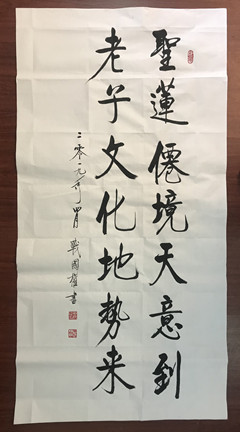 聖蓮僊境天意到
老子文化地勢来
二零一九年四月 戰國權書